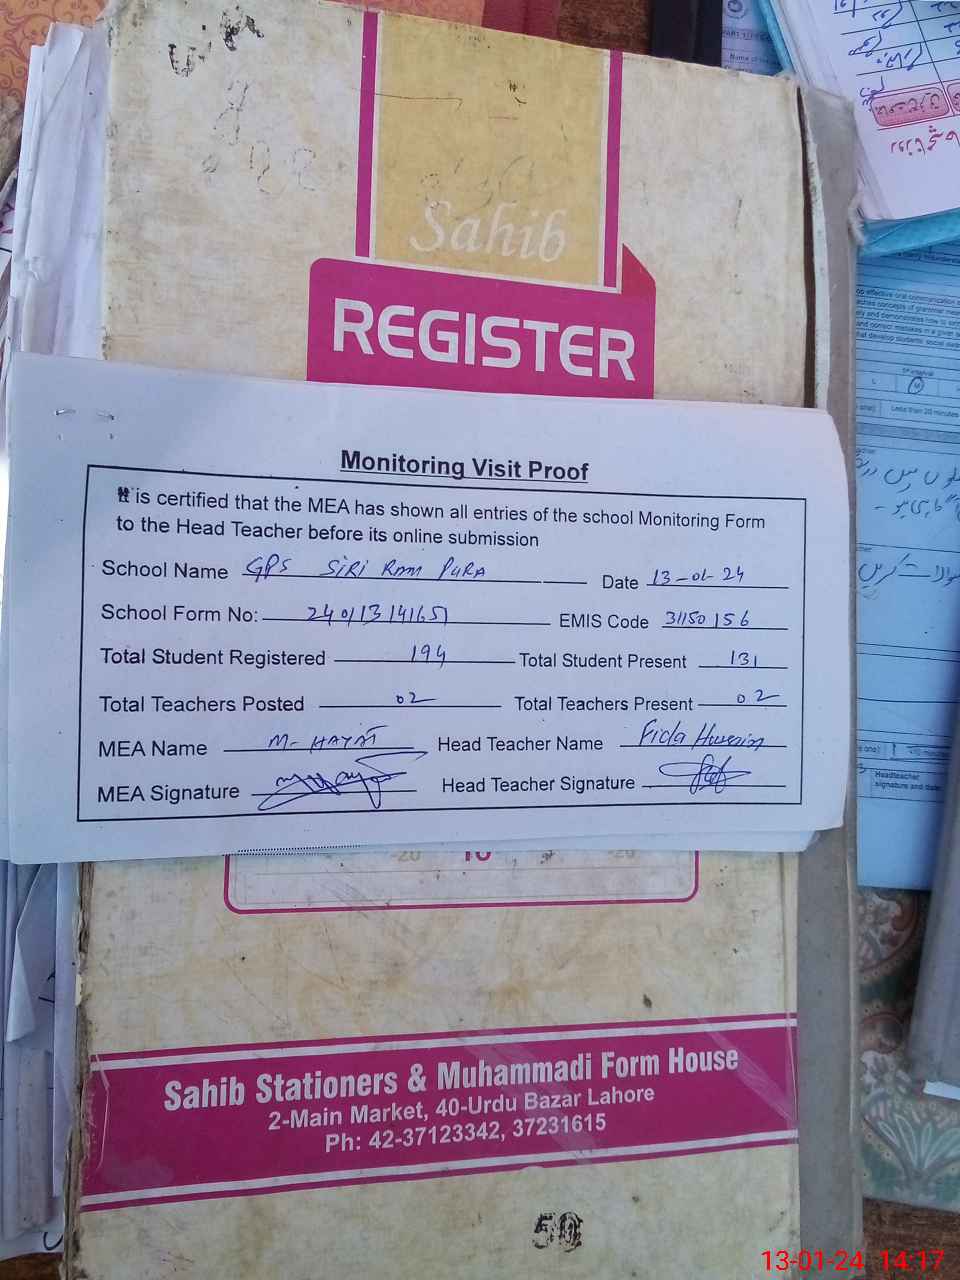 Sahib
REGISTER
Monitoring Visit Proof
It is certified that the MEA has shown all entries of the school Monitoring Form
to the Head Teacher before its online submission
School Name GPS SIRI RAM PURA Date 13-01-24
School Form No: 240113141651 EMIS Code 31150156
Total Student Registered 194 Total Student Present 131
Total Teachers Posted 02 Total Teachers Present 02
MEA Name M- HAYAT Head Teacher Name Fida Hussain
MEA Signature Head Teacher Signature
Sahib Stationers & Muhammadi Form House
2-Main Market, 40-Urdu Bazar Lahore
Ph: 42-37123342, 37231615
50
Less than 20 minutes
Headteacher
signature and date
13-01-24 14:17